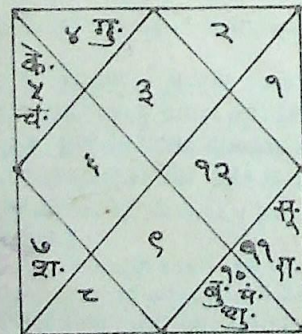 ४ गु.
२
चं. ५ के.
३
१
६
१२
सू.
७
श.
९
११ रा.
८
१०
बु. मं.
शु.